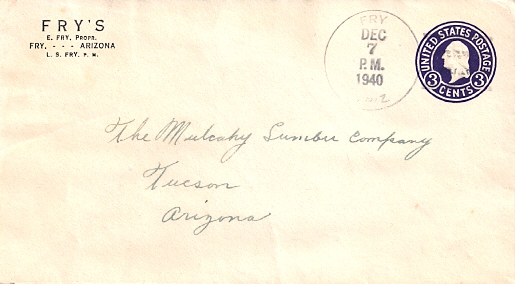 FRY'S
E. FRY, PROPR.
FRY, - - - ARIZONA
L. S. FRY, P. M.
FRY
DEC
7
P.M.
1940
UNITED STATES POSTAGE
3 3
CENTS
The Mulcahy Lumber Company
Tucson
Arizona